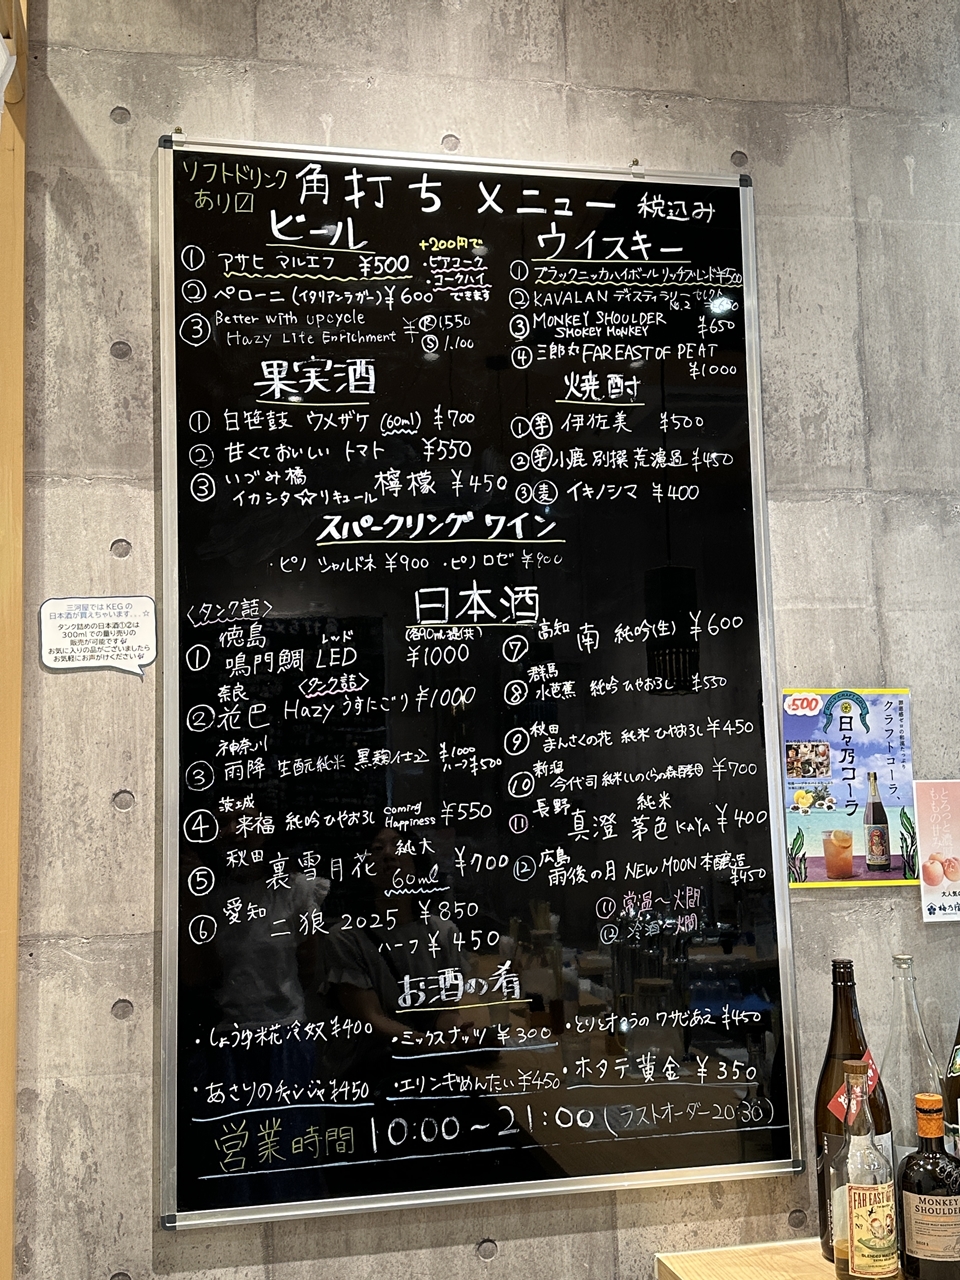 ソフトドリンク
あり〼
角打ち メニュー 税込み
ビール
① アサヒ マルエフ ¥500
② ペローニ(イタリアンラガー)¥600
+200円で
・ビアコーク
・コークハイ
できます
③ Better with upcycle
Hazy Lite Enrichment ¥Ⓡ1,550
Ⓢ1,100
ウイスキー
① ブラックニッカハイボール リッチブレンド¥500
② KAVALAN ディスティラリーセレクト
No.2
③ MONKEY SHOULDER
SMOKEY MONKEY ¥650
④ 三郎丸 FAR EAST OF PEAT
¥1000
果実酒
① 白笹鼓 ウメザケ (60ml) ¥700
② 甘くておいしい トマト ¥550
③ いづみ橋
イカシタ☆リキュール 檸檬 ¥450
焼酎
① 芋 伊佐美 ¥500
② 芋 小鹿 別撰 荒濾過 ¥450
③ 麦 イキノシマ ¥400
スパークリング ワイン
・ピノ シャルドネ ¥900 ・ピノ ロゼ ¥900
日本酒
(各90ml提供)
〈タンク詰〉
① 徳島
鳴門鯛 LED ¥1000
レッド
② 奈良 〈タンク詰〉
花巴 Hazy うすにごり ¥1000
③ 神奈川
雨降 生酛純米 黒麹仕込 ¥1000
ハーフ¥500
④ 茨城
来福 純吟 ひやおろし coming Happiness ¥550
⑤ 秋田
裏雪月花 純大 60ml ¥700
⑥ 愛知
二狼 2025 ¥850
ハーフ ¥450
⑦ 高知 南 純吟(生) ¥600
⑧ 群馬
水芭蕉 純吟 ひやおろし ¥550
⑨ 秋田
まんさくの花 純米 ひやおろし ¥450
⑩ 新潟
今代司 純米 いのくらの森酵母 ¥700
⑪ 長野
真澄 純米 茅色 KAYA ¥400
⑫ 広島
雨後の月 NEW MOON 本醸造
¥450
⑪ 常温〜燗
⑫ 冷酒〜燗
お酒の肴
・しょうゆ糀冷奴 ¥400 ・ミックスナッツ ¥300 ・とりとオクラの ワサビあえ ¥450
・あさりのチャンジャ ¥450 ・エリンギめんたい ¥450 ・ホタテ黄金 ¥350
営業時間 10:00〜21:00(ラストオーダー20:30)
三河屋ではKEGの
日本酒が買えちゃいます...☆
タンク詰めの日本酒①②は
300mlでの量り売りの
販売が可能です
お気に入りの品がございましたら
お気軽にお声がけください
¥500
クラフトコーラ、
日々乃コーラ
とろっと濃
ももの甘
大人気の
梅乃宿
FAR EAST OF
MONKEY
SHOULDER